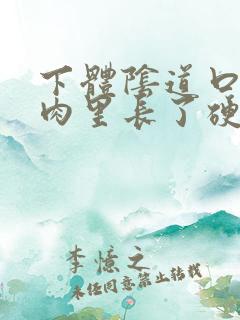 下體陰道口
肉里長了硬
李憶之
未经同意禁止转载